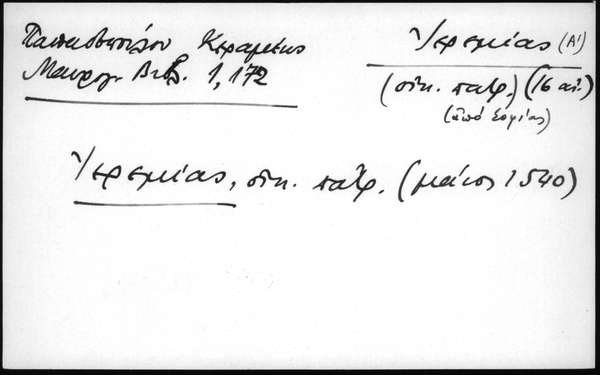 Παπαδοπούλου Κεραμέως
Μαυρογ. Βιβλ. 1, 172
Ἱερεμίας (Α')
(οἰκ. πατρ.) (16 αἰ.)
(ἀπό Σοφίας)
Ἱερεμίας, οἰκ. πατρ. (μάιος 1540)